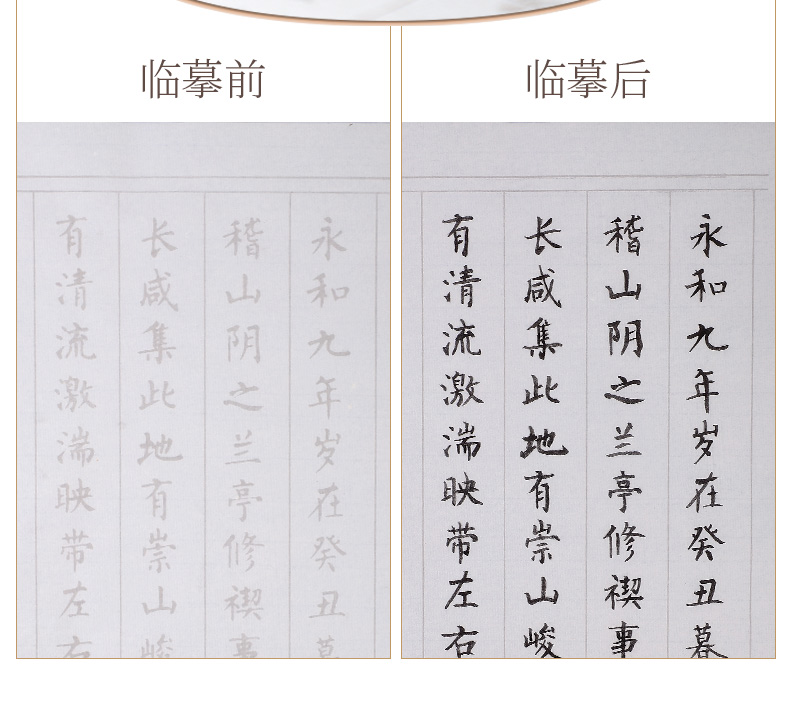 临摹前
永和九年岁在癸丑暮
稽山阴之兰亭修禊事
长咸集此地有崇山峻
有清流激湍映带左右
临摹后
永和九年岁在癸丑暮
稽山阴之兰亭修禊事
长咸集此地有崇山峻
有清流激湍映带左右